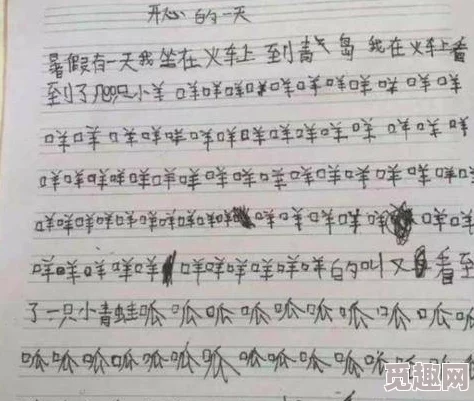 开心的一天
暑假有一天我坐在火车上到青岛我在火车上看
到了几只小羊咩咩咩咩咩咩咩咩咩咩咩咩咩
咩咩咩咩咩咩咩咩咩咩咩咩咩咩咩咩
咩咩咩咩咩咩咩咩咩咩咩咩咩咩咩咩咩咩
咩咩咩咩咩咩咩咩咩咩咩咩咩咩咩咩咩
咩咩咩咩咩咩咩咩咩咩咩咩的叫又看到
了一只小青蛙呱呱呱呱呱呱呱呱呱
呱呱呱呱呱呱呱呱呱呱呱呱呱呱
觅趣网